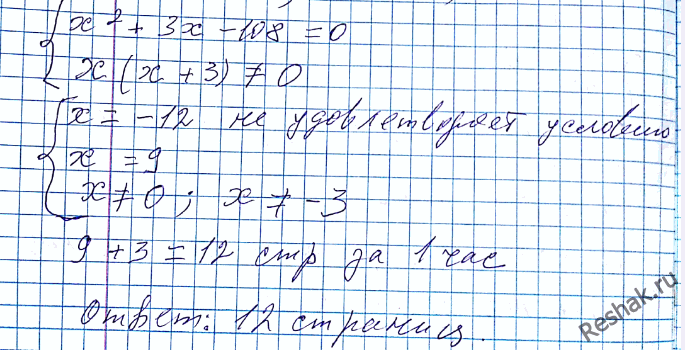 x² + 3x - 108 = 0
x (x + 3) ≠ 0
x = -12 не удовлетворяет условию
x = 9
x ≠ 0 ; x ≠ -3
9 + 3 = 12 стр за 1 час
Ответ: 12 страниц.
Reshak.ru